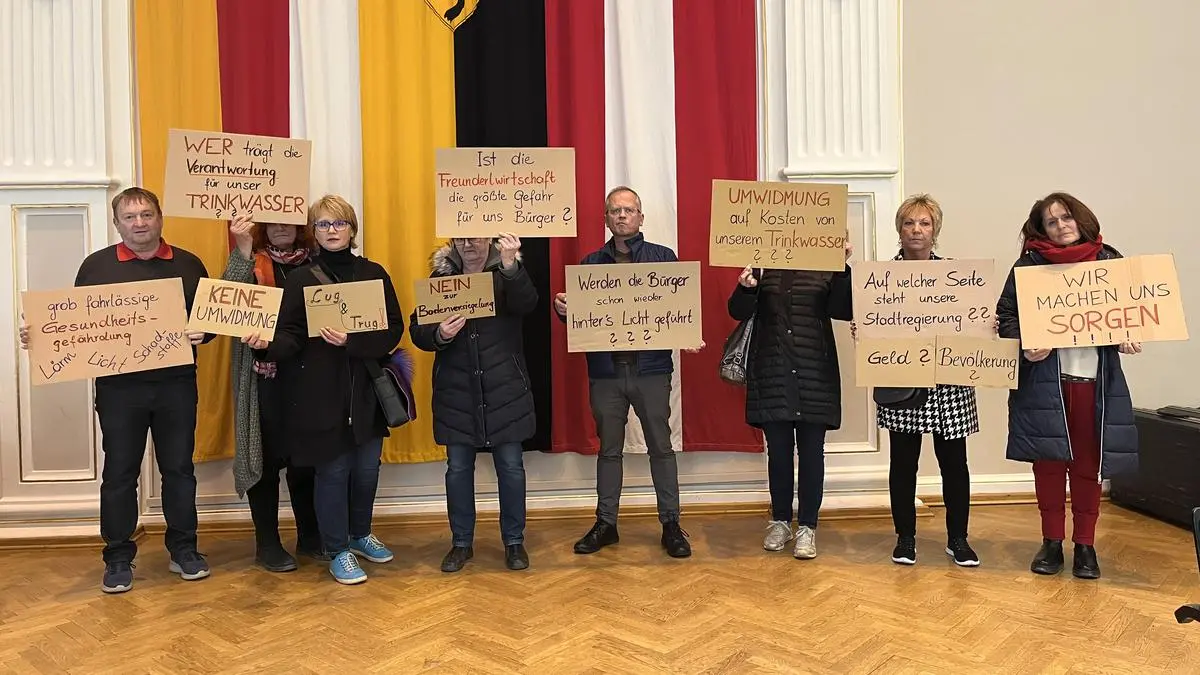 grob fahrlässige
Gesundheits-
gefährdung
Lärm Licht Schadstoffe
WER trägt die
Verantwortung
für unser
TRINKWASSER
? ? ?
KEINE
UMWIDMUNG
Lug
&
Trug!
Ist die
Freunderlwirtschaft
die größte Gefahr
für uns Bürger?
NEIN
zur
Bodenversiegelung
Werden die Bürger
schon wieder
hinter's Licht geführt
? ? ?
UMWIDMUNG
auf Kosten von
unserem Trinkwasser
? ? ?
Auf welcher Seite
steht unsere
Stadtregierung ??
Geld? Bevölkerung
?
WIR
MACHEN UNS
SORGEN
!!!!